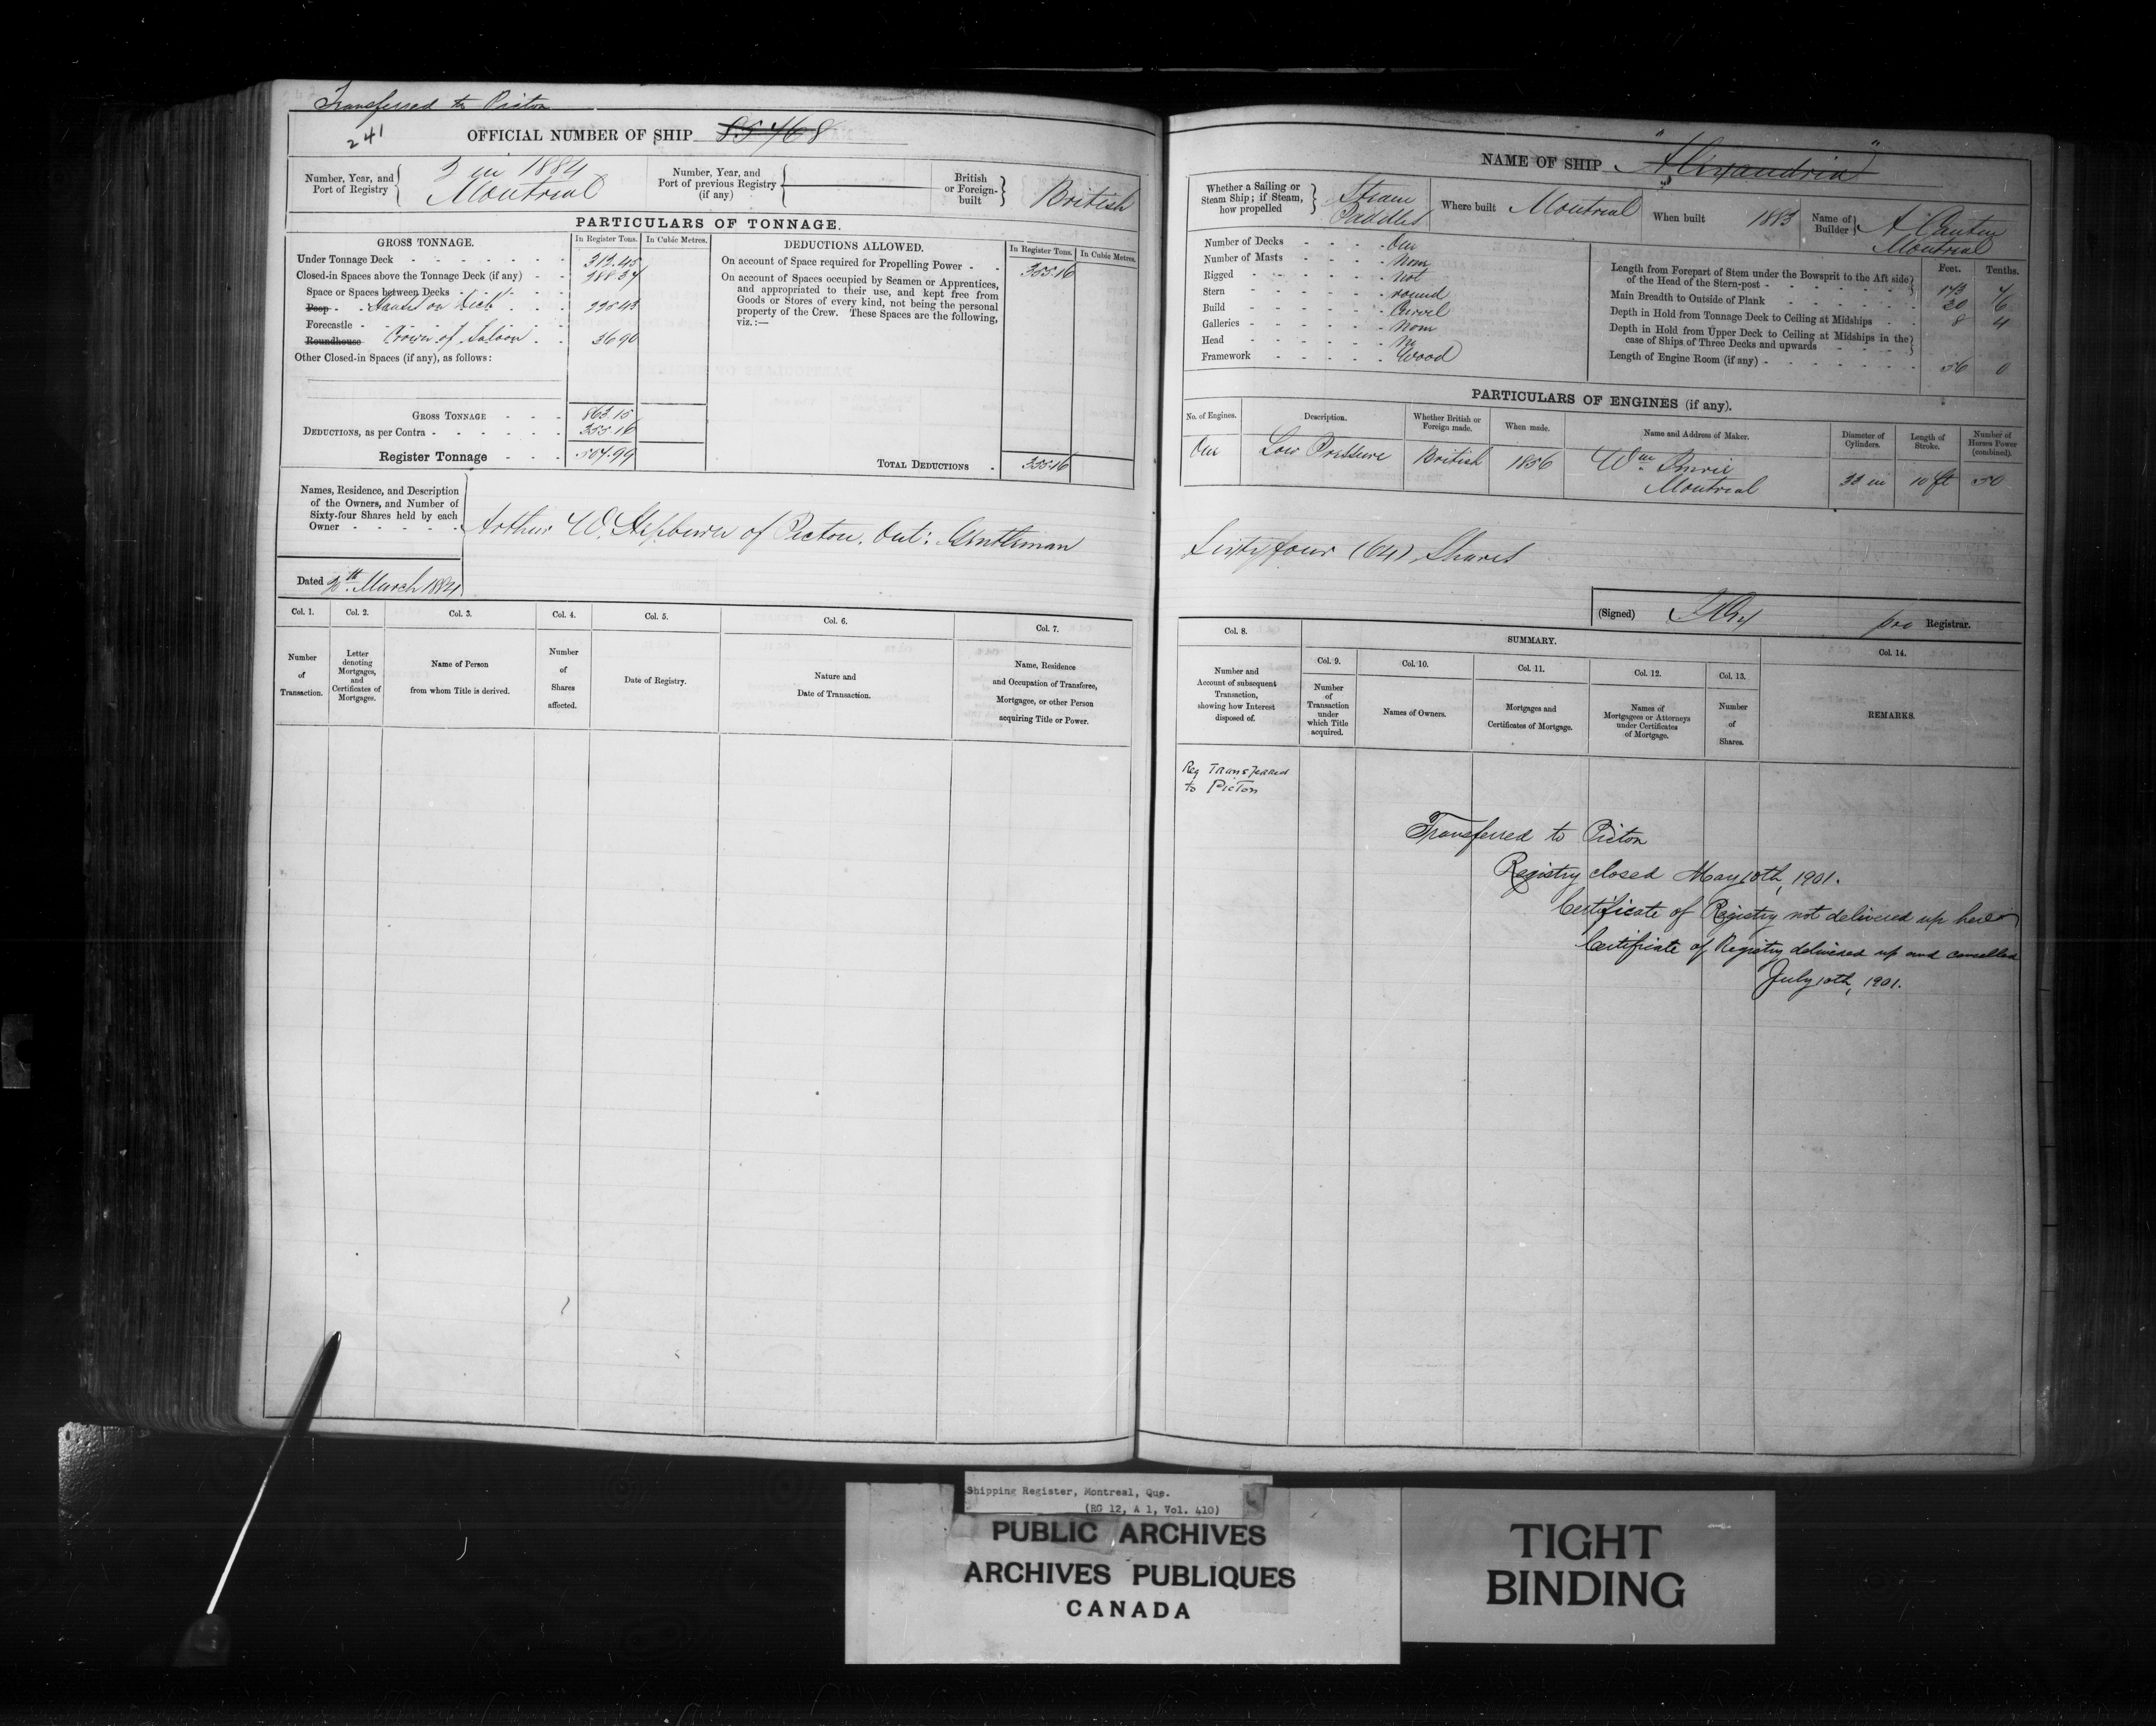 Transferred to Picton
241
OFFICIAL NUMBER OF SHIP 85468
Number, Year, and Port of Registry
3 in 1884
Montreal
Number, Year, and Port of previous Registry (if any)
British or Foreign-built
British
PARTICULARS OF TONNAGE.
GROSS TONNAGE.
In Register Tons.
In Cubic Metres.
Under Tonnage Deck 312.45
Closed-in Spaces above the Tonnage Deck (if any)
Space or Spaces between Decks 288.37
Poop Houses on Deck 225.43
Forecastle
Roundhouse Crown of Saloon 36.90
Other Closed-in Spaces (if any), as follows:
GROSS TONNAGE 863.15
DEDUCTIONS, as per Contra 355.16
Register Tonnage 507.99
DEDUCTIONS ALLOWED.
In Register Tons.
In Cubic Metres.
On account of Space required for Propelling Power 355.16
On account of Spaces occupied by Seamen or Apprentices,
and appropriated to their use, and kept free from
Goods or Stores of every kind, not being the personal
property of the Crew. These Spaces are the following,
viz.:—
TOTAL DEDUCTIONS 355.16
Names, Residence, and Description
of the Owners, and Number of
Sixty-four Shares held by each
Owner
Arthur W. Hepburn of Picton. Ont: Gentleman
Dated March 1884
Col. 1.
Number
of
Transaction.
Col. 2.
Letter
denoting
Mortgages,
and
Certificates of
Mortgages.
Col. 3.
Name of Person
from whom Title is derived.
Col. 4.
Number
of
Shares
affected.
Col. 5.
Date of Registry.
Col. 6.
Nature and
Date of Transaction.
Col. 7.
Name, Residence
and Occupation of Transferee,
Mortgagee, or other Person
acquiring Title or Power.
NAME OF SHIP "Alexandria"
Whether a Sailing or
Steam Ship; if Steam,
how propelled
Steam
Paddles
Where built Montreal
When built 1883
Name of Builder A Cantin
Montreal
Number of Decks One
Number of Masts None
Rigged Not
Stern round
Build Carvel
Galleries None
Head No
Framework Wood
Feet. Tenths.
Length from Forepart of Stem under the Bowsprit to the Aft side
of the Head of the Stern-post 173
Main Breadth to Outside of Plank 30 6
Depth in Hold from Tonnage Deck to Ceiling at Midships 8 4
Depth in Hold from Upper Deck to Ceiling at Midships in the
case of Ships of Three Decks and upwards
Length of Engine Room (if any) 56 0
PARTICULARS OF ENGINES (if any).
No. of Engines.
Description.
Whether British or Foreign made.
When made.
Name and Address of Maker.
Diameter of Cylinders.
Length of Stroke.
Number of Horses Power (combined).
One Low Pressure British 1856 Wm 10 ft 50
Montreal
Sixty four (64) Shares
(Signed) pro Registrar.
Col. 8.
Number and
Account of subsequent
Transaction,
showing how Interest
disposed of.
SUMMARY.
Col. 9.
Number
of
Transaction
under
which Title
acquired.
Col. 10.
Names of Owners.
Col. 11.
Mortgages and
Certificates of Mortgage.
Col. 12.
Names of
Mortgagees or Attorneys
under Certificates
of Mortgage.
Col. 13.
Number
of
Shares.
Col. 14.
REMARKS.
Reg Transferred
to Picton
Transferred to Picton
Registry closed May 10th, 1901.
Certificate of Registry not delivered up here
Certificate of Registry delivered up and cancelled
July 10th, 1901.
Shipping Register, Montreal, Que.
(RG 12, A 1, Vol. 410)
PUBLIC ARCHIVES
ARCHIVES PUBLIQUES
CANADA
TIGHT
BINDING